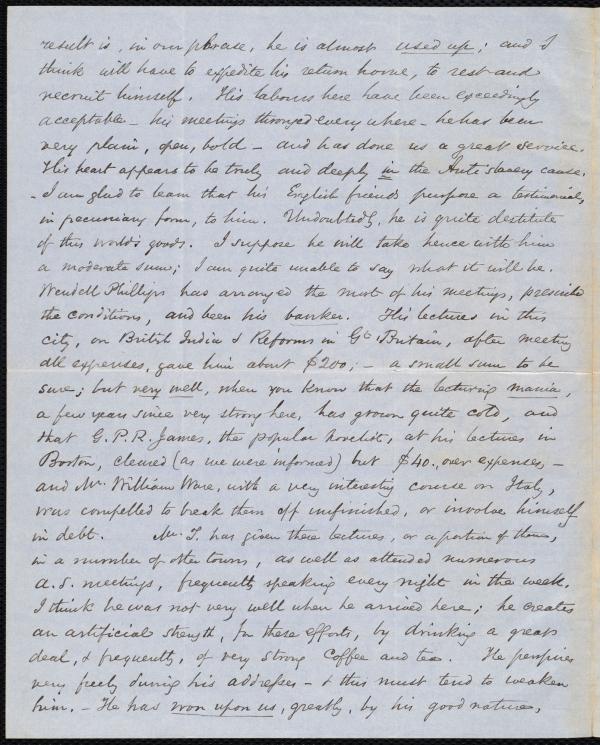 result is, in our phrase, he is almost used up; and I
think will have to expedite his return home, to rest and
recruit himself. His labours here have been exceedingly
acceptable - his meetings thronged every where - he has been
very plain, open, bold - and has done us a great service.
His heart appears to be truly and deeply in the Anti slavery cause.
- I am glad to learn that his English friends purpose a testimonial,
in pecuniary form, to him. Undoubtedly, he is quite destitute
of this world's goods. I suppose he will take hence with him
a moderate sum; I am quite unable to say what it will be.
Wendell Phillips has arranged the most of his meetings, prescribed
the conditions, and been his banker. His lectures in this
city, on British India & Reforms in Gt. Britain, after meeting
all expenses, gave him about $200; - a small sum to be
sure; but very well, when you know that the lecturing mania,
a few years since very strong here, has grown quite cold, and
that G. P. R. James, the popular novelist, at his lectures in
Boston, cleared (as we were informed) but $40. over expenses, -
and Mr. William Ware, with a very interesting course on Italy,
was compelled to break them off unfinished, or involve himself
in debt. Mr. T. has given these lectures, or a portion of them,
in a number of other towns, as well as attended numerous
a. s. meetings, frequently speaking every night in the week.
I think he was not very well when he arrived here; he creates
an artificial strength, for these efforts, by drinking a great
deal, & frequently, of very strong coffee and tea. He perspires
very freely during his addresses - & this must tend to weaken
him. - He has won upon us, greatly, by his good nature,